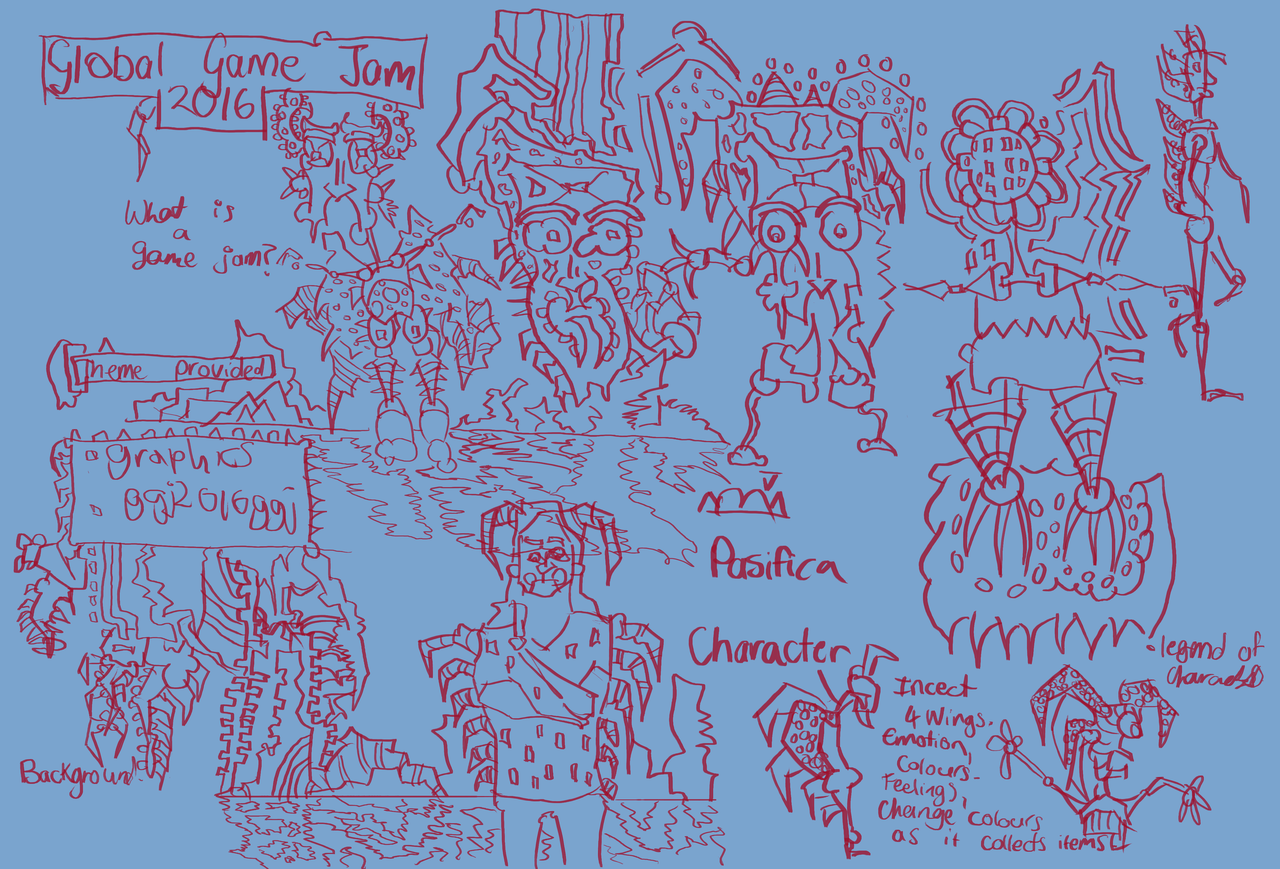 Global Game Jam
2016
What is
a
game jam?
Theme provided
graphics
ggj2016ggj
Pasifica
Character
legend of
Background
Incect
4 Wings.
Emotion,
Colours.
Feelings,
Change colours
as it collects items